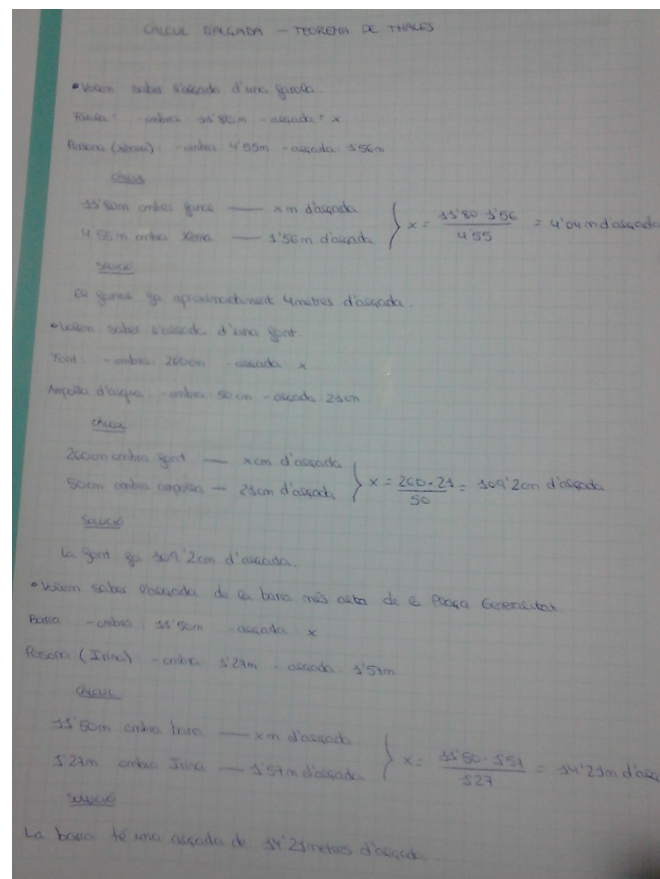 CÀLCUL D'ALÇADA - TEOREMA DE THALES
• Volem saber l'alçada d'una farola.
Farola: - ombra: 11'80m - alçada: x
Persona (Xènia): - ombra 4'55m - alçada 1'56m
CÀLCUL
11'80m ombra farola — x m d'alçada
4'55m ombra Xènia — 1'56m d'alçada } x = 11'80·1'56 / 4'55 = 4'04m d'alçada
SOLUCIÓ
La farola fa aproximadament 4 metres d'alçada.
• Volem saber l'alçada d'una font.
Font: - ombra: 260cm - alçada x
Ampolla d'aigua: - ombra 50cm - alçada 21cm
CÀLCUL
260cm ombra font — x cm d'alçada
50cm ombra ampolla — 21cm d'alçada } x = 260·21 / 50 = 109'2cm d'alçada
SOLUCIÓ
La font fa 109'2cm d'alçada.
• Volem saber l'alçada de la barra més alta de la Plaça Generalitat.
Barra - ombra: 11'50m - alçada: x
Persona (Irina) - ombra: 1'27m - alçada 1'57m
CÀLCUL
11'50m ombra barra — x m d'alçada
1'27m ombra Irina — 1'57m d'alçada } x = 11'50·1'57 / 1'27 = 14'21m d'alça
SOLUCIÓ
La barra té una alçada de 14'21 metres d'alçada.